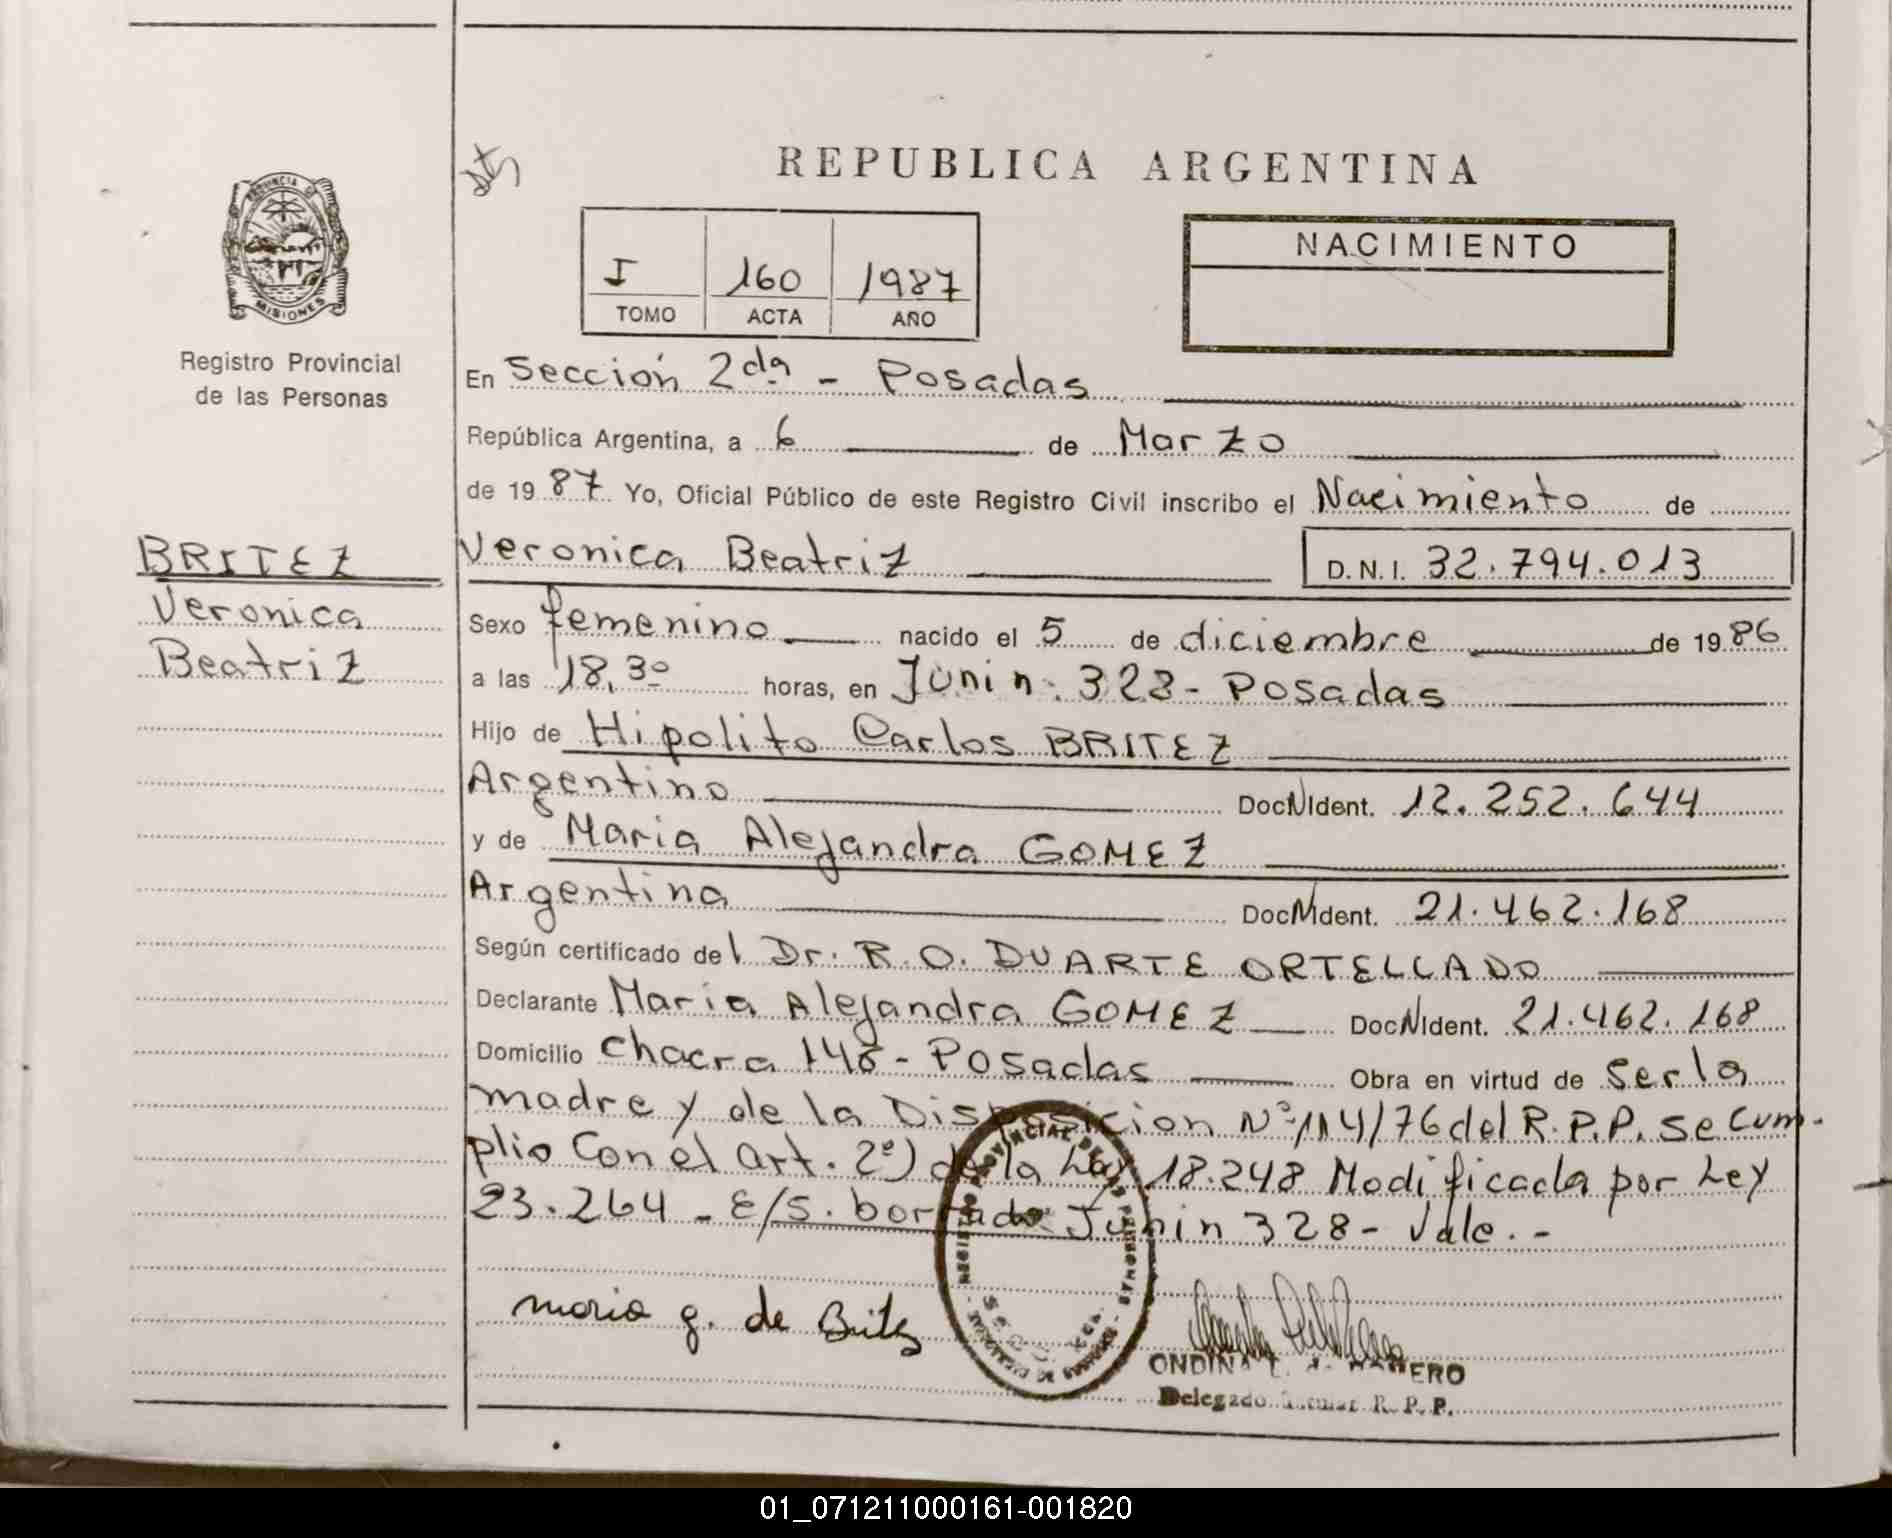 REPUBLICA ARGENTINA
PROVINCIA DE
MISIONES
Registro Provincial
de las Personas
I 160 1987
TOMO ACTA AÑO
NACIMIENTO
En Sección 2da - Posadas
República Argentina, a 6 de Marzo
de 1987 Yo, Oficial Público de este Registro Civil inscribo el Nacimiento de
BRITEZ
Veronica
Beatriz
Veronica Beatriz D.N.I. 32.794.013
Sexo femenino nacido el 5 de diciembre de 1986
a las 18,30 horas, en Junin 328 - Posadas
Hijo de Hipolito Carlos BRITEZ
Argentino Doc N Ident. 12.252.644
y de Maria Alejandra GOMEZ
Argentina Doc N Ident. 21.462.168
Según certificado del Dr. R.O. DUARTE ORTELLADO
Declarante Maria Alejandra GOMEZ Doc N Ident. 21.462.168
Domicilio Chacra 148 - Posadas Obra en virtud de ser la
madre y de la Disposicion Nº 114/76 del R.P.P. se Cum-
plio Con el Art. 2º) de la Ley 18.248 Modificada por Ley
23.264 - E/S. borrado Junin 328 - Vale.-
maria g. de Britez
REGISTRO PROVINCIAL DE LAS PERSONAS
MISIONES
ONDINA
Delegado Titular R.P.P.
01_071211000161-001820